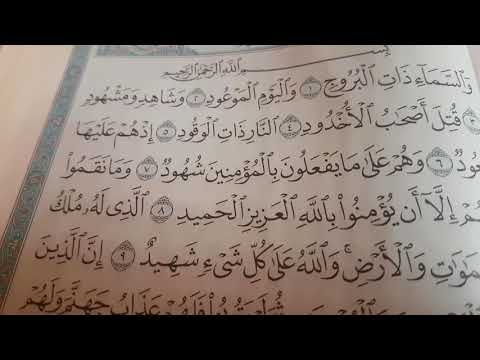 بِسْمِ اللَّهِ الرَّحْمَٰنِ الرَّحِيمِ
وَالسَّمَاءِ ذَاتِ الْبُرُوجِ ١ وَالْيَوْمِ الْمَوْعُودِ ٢ وَشَاهِدٍ وَمَشْهُودٍ
٣ قُتِلَ أَصْحَابُ الْأُخْدُودِ ٤ النَّارِ ذَاتِ الْوَقُودِ ٥ إِذْ هُمْ عَلَيْهَا
٦ وَهُمْ عَلَىٰ مَا يَفْعَلُونَ بِالْمُؤْمِنِينَ شُهُودٌ ٧ وَمَا نَقَمُوا
إِلَّا أَن يُؤْمِنُوا بِاللَّهِ الْعَزِيزِ الْحَمِيدِ ٨ الَّذِي لَهُ مُلْكُ
وَالْأَرْضِ ۚ وَاللَّهُ عَلَىٰ كُلِّ شَيْءٍ شَهِيدٌ ٩ إِنَّ الَّذِينَ
فَلَهُمْ عَذَابُ جَهَنَّمَ وَلَهُمْ